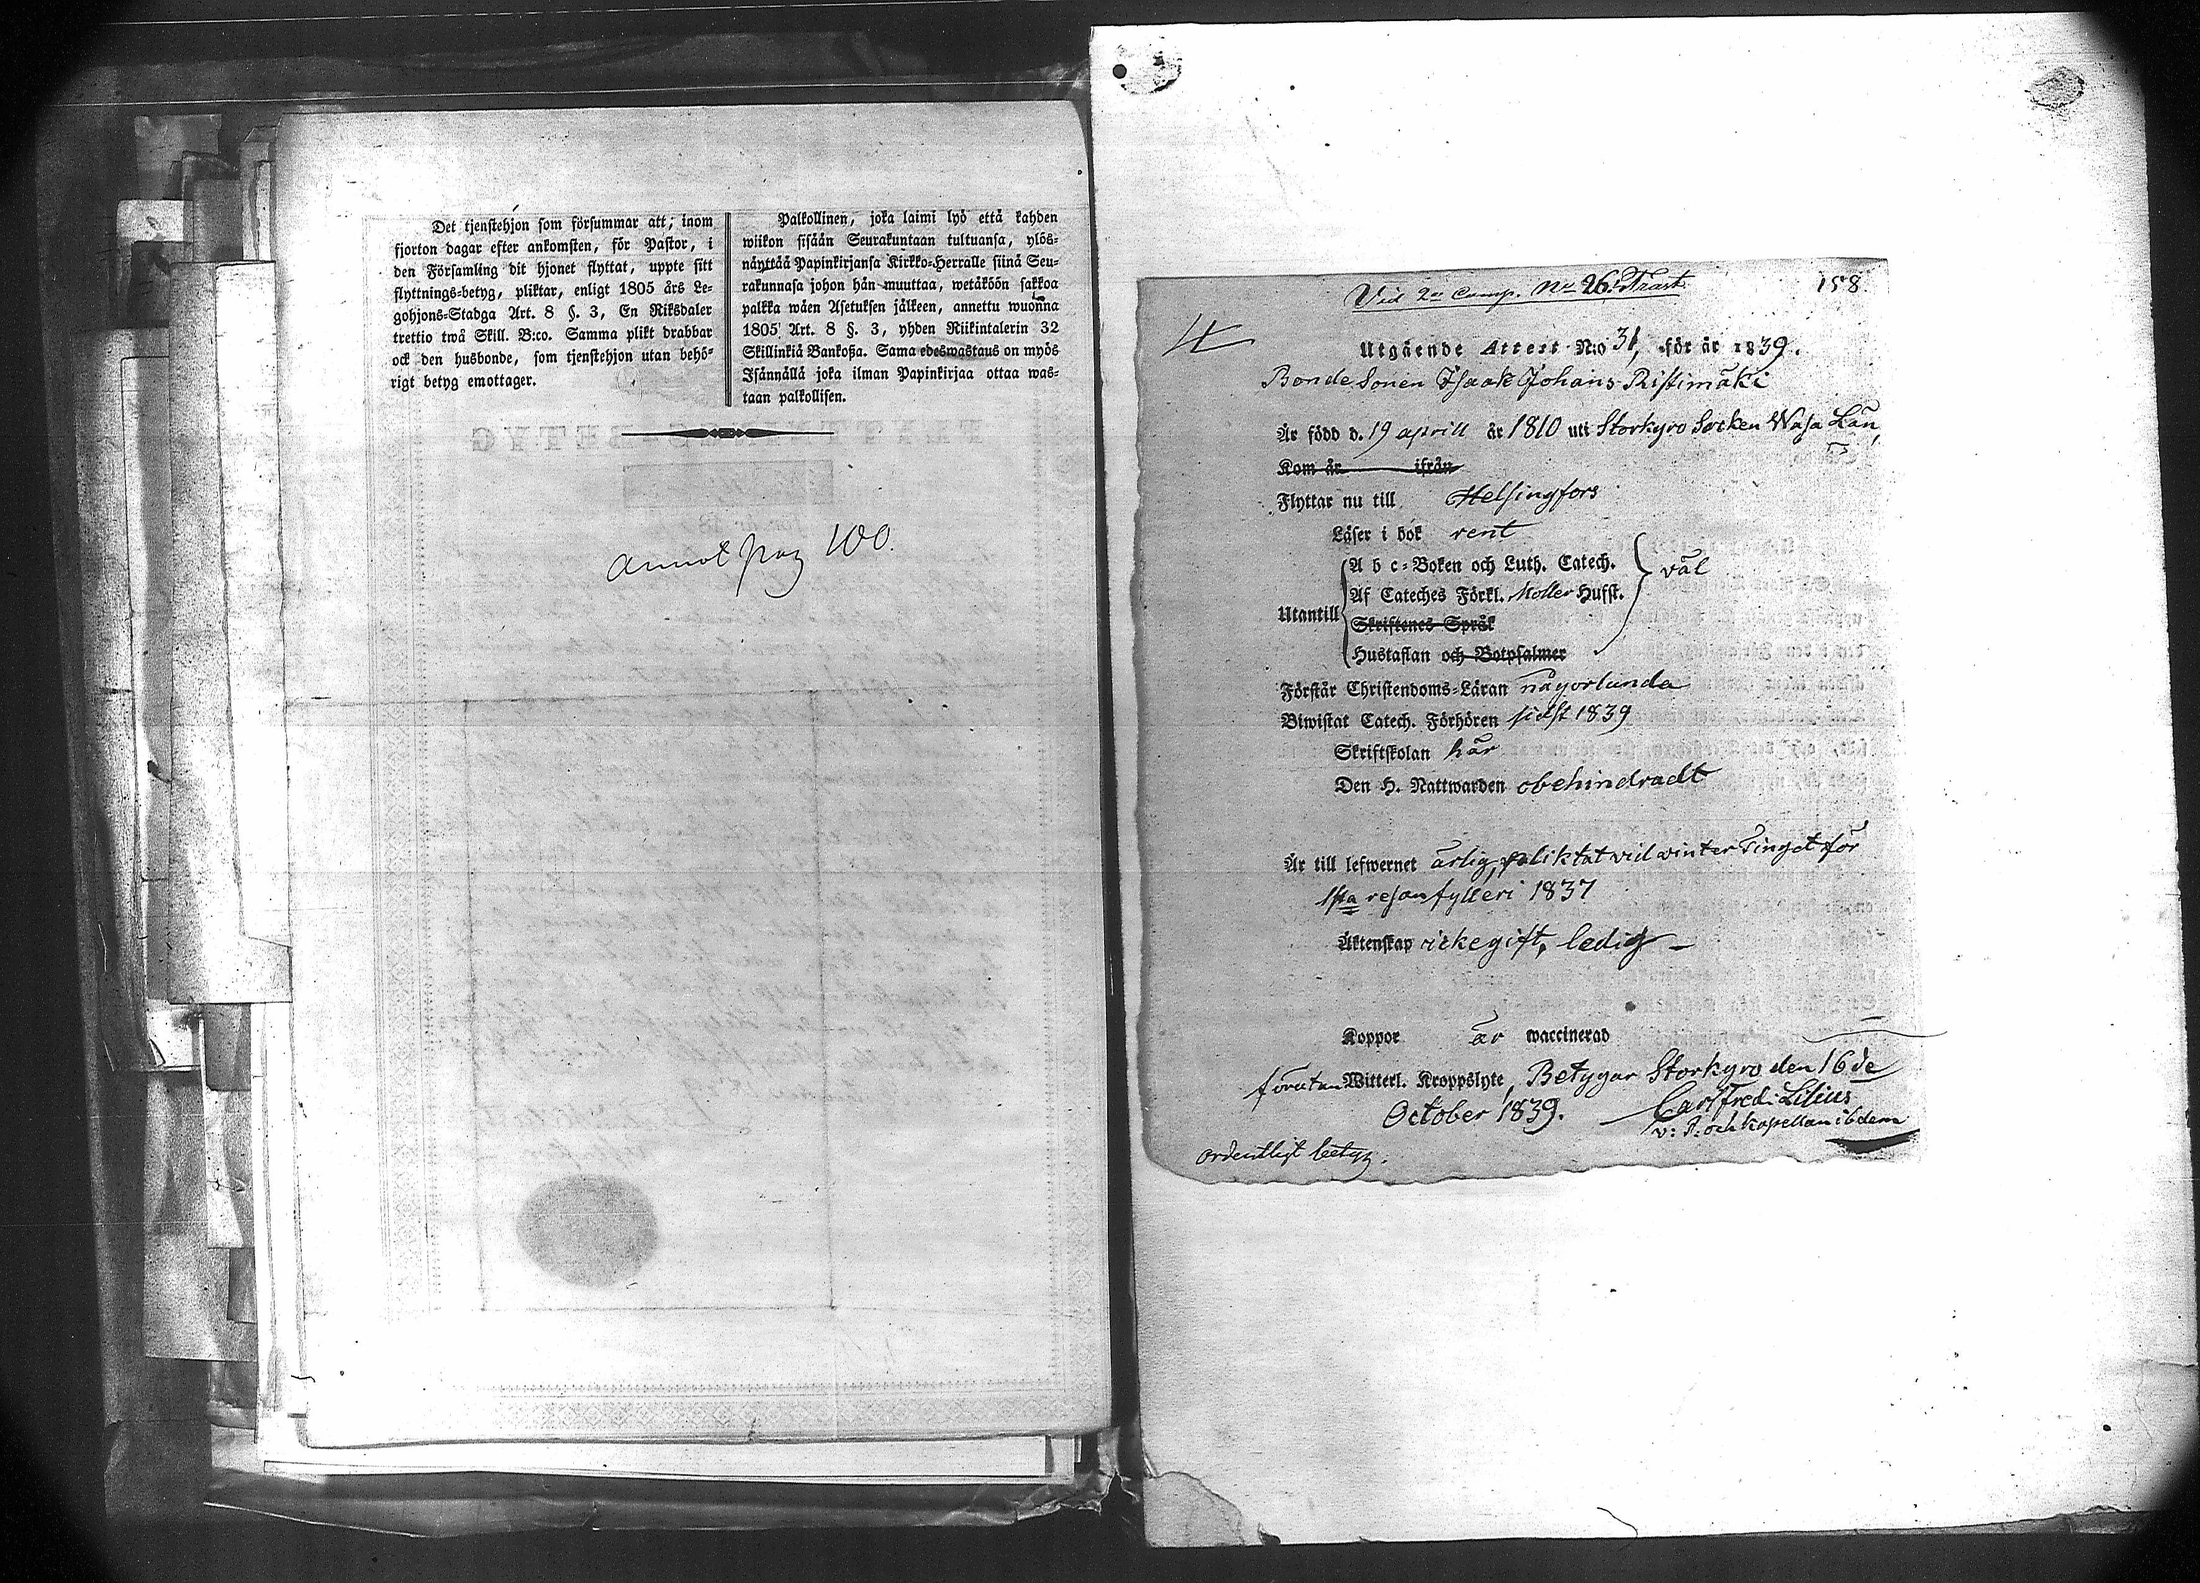 Det tjenstehjon som försummar att, inom
fjorton dagar efter ankomsten, för Pastor, i
den Församling dit hjonet flyttat, uppte sitt
flyttnings-betyg, pliktar, enligt 1805 års Le-
gohjons-Stadga Art. 8 §. 3, En Riksdaler
trettio twå Skill. B:co. Samma plikt drabbar
ock den husbonde, som tjenstehjon utan behö-
rigt betyg emottager.
Palkollinen, joka laimi lyö että kahden
wiikon sisään Seurakuntaan tultuansa, ylös-
näyttää Papinkirjansa Kirkko-Herralle siinä Seu-
rakunnasa johon hän muuttaa, wetäköön sakkoa
palkka wäen Asetuksen jälkeen, annettu wuonna
1805 Art. 8 §. 3, yhden Riikintalerin 32
Skillinkiä Bankoßa. Sama edeswastaus on myös
Isännällä joka ilman Papinkirjaa ottaa was-
taan palkollisen.
annot pag 100.
Vid 2ra Comp. No 26. Trast
158
Utgående Attest N:o 31, för år 1839.
Bonde Sonen Isaak Johans. Ristimäki
Är född d. 19 aprill år 1810 uti Storkyro Socken Wasa Län,
Kom år ifrån
Flyttar nu till Helsingfors
Läser i bok rent
A b c-Boken och Luth. Catech. väl
Af Cateches Förkl. Möller Hufst.
Utantill
Skriftenes Språk
Hustaflan och Botpsalmer
Förstår Christendoms-Läran någorlunda
Biwistat Catech. Förhören sidst 1839
Skriftskolan här
Den H. Nattwarden obehindradt
Är till lefwernet ärlig, pliktat vid winter Tinget för
1sta resan fylleri 1837
Äktenskap icke gift, ledig –
Koppor är waccinerad
förutan Witterl. Kroppslyte, Betygar Storkyro den 16 de
October 1839. Carl Fred: Lilius
v: P: och kapellan ibdem
ordentligt betyg.